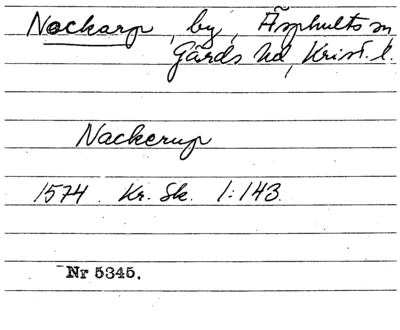 Nockarp, by, Äsphults sn
Gärds hd, Krist. l.
Nackerup
1574. Kr. Sk. 1:143.
Nr 5345.